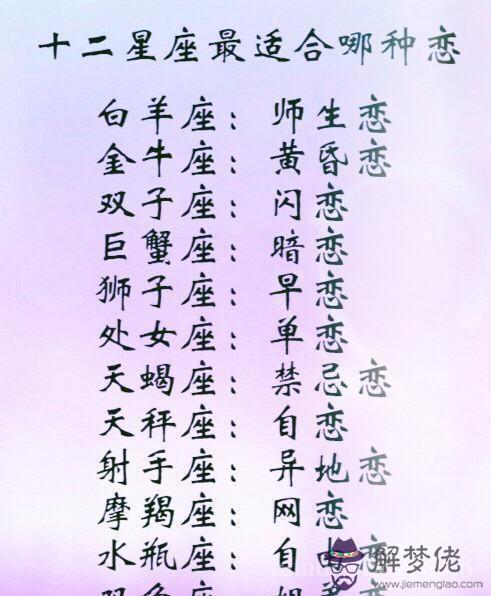 十二星座最适合哪种恋
白羊座：师生恋
金牛座：黄昏恋
双子座：闪恋
巨蟹座：暗恋
狮子座：早恋
处女座：单恋
天蝎座：禁忌恋
天秤座：自恋
射手座：异地恋
摩羯座：网恋
水瓶座：自由恋
双鱼座：
解梦佬
www.jiemenglao.com